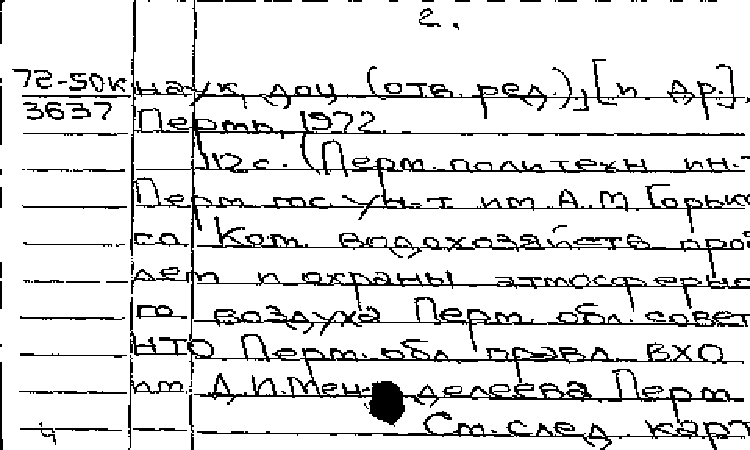 2.
72-50к наук, доц (отв. ред.), [и др.].
3637 Пермь, 1972.
112 с. (Перм. политехн ин-т
Перм гос ун-т им А.М Горько
го Ком. водохозяйств
лем и охраны атмосферно
го воздуха Перм. обл. совет
НТО Перм. обл. правл ВХО
им Д.И. Менделеева Перм.
См. след. карт
4